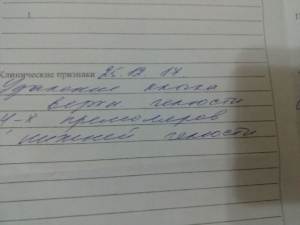 Клинические признаки 25.12.17.
Удаление клыка
верхн челюсти
4-х премоляров
нижней челюсти